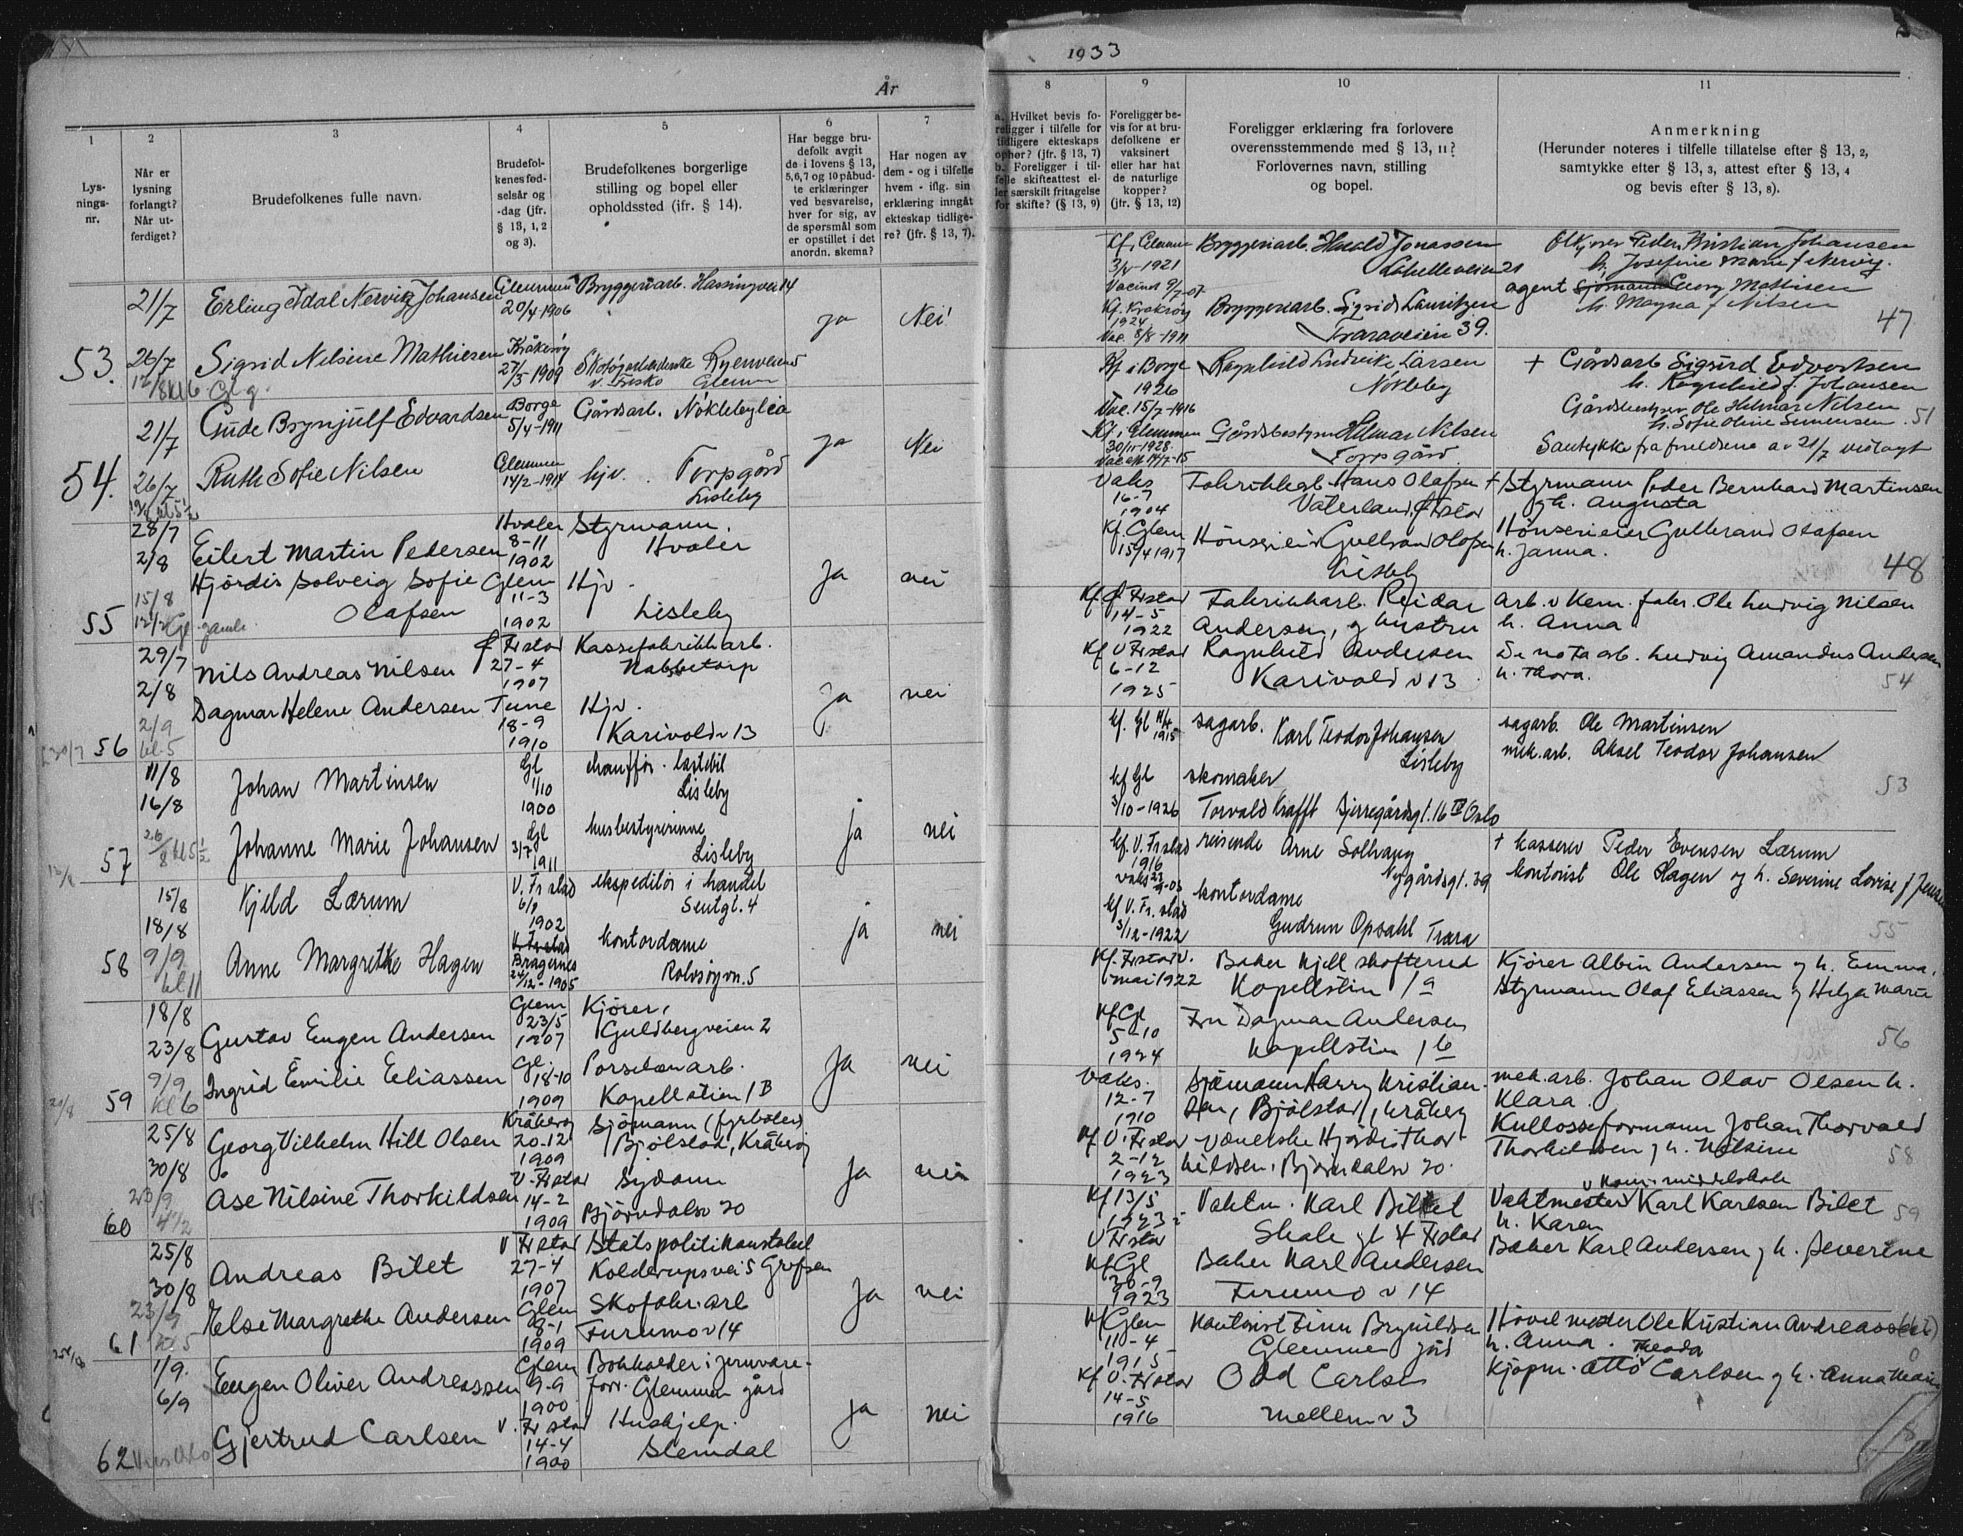 År
1933
1
2
3
4
5
6
7
Lys-
nings-
nr.
Når er
lysning
forlangt?
Når ut-
ferdiget?
Brudefolkenes fulle navn.
Brudefol-
kenes fød-
selsår og
-dag (jfr.
§ 13, 1, 2
og 3).
Brudefolkenes borgerlige
stilling og bopel eller
opholdssted (ifr. § 14).
Har begge bru-
defolk avgit
de i lovens § 13,
5,6,7 og 10 påbud-
te erklæringer
ved besvarelse,
hver for sig, av
de spørsmål som
er opstillet i det
anordn. skema?
Har nogen av
dem - og i tilfelle
hvem - iflg. sin
erklæring inngåt
ekteskap tidlige-
re? (jfr. § 13, 7).
21/7
Erling Idal Nervig Johansen
Glemmen
20/4 1906
Bryggeriarb. Hassingvei 14
ja
Nei
53.
26/7
12/8 kl 6 Gl g.
Sigrid Nilsine Mathiesen
Kråkerøy
27/5 1909
21/7
Gude Brynjulf Edvardsen
Borge
5/4-1911
Gårdsarb. Nøklebylia
ja
Nei
54.
26/7
Ruth Sofie Nilsen
Glemmen
14/2-1914
hjv. Torpgård
Lisleby
28/7
2/8
Eilert Martin Pedersen
Hvaler
8-11
1902
Styrmann.
Hvaler
55
15/8
Hjørdis Solveig Sofie
Olafsen
Glem
11-3
1902
Hjv.
Lisleby
ja
nei
29/7
2/8
Nils Andreas Nilsen
Frstad
27-4
1907
Kassefabrikkarb.
Nabbetorp
ja
nei
56
2/9
kl. 5
Dagmar Helene Andersen
Tune
18-9
1910
Hjv.
Karivold v 13
11/8
16/8
Johan Martinsen
Gl
1/10
1900
chauffør. lastebil
Lisleby
57
26/8 kl 5 1/2
Johanne Marie Johansen
Gl
3/7
1911
husbestyrerinne
Lisleby
ja
nei
15/8
18/8
Kjeld Lærum
V. Fr stad
6/8
1902
ekspeditør i handel
Sentgt. 4
ja
nei
58
9/9
kl 11
Anne Margrethe Hagen
V. Fr.stad
Bragernes
24/12-1905
kontordame
Rolvsøyvn. 5
18/8
23/8
Gustav Eugen Andersen
Glem
23/5
1907
Kjører,
Guldbergveien 2
59
9/9
kl 6
Ingrid Emilie Eliassen
Gl.
18-10
1909
Porselænarb.
Kapellstien 1 B
ja
nei
25/8
30/8
Georg Vilhelm Hill Olsen
Kråkerøy
20-12
1909
Sjømann (fyrbøter)
Bjølstad, Kråkerøy
60
23/9
4 1/2
Åse Nilsine Thorkildsen
V. Frstad
14-2
1909
Sydame
Bjørndalsv 20
ja
nei
25/8
30/8
Andreas Bilet
V Frstad
27-4
1907
Statspolitikonstabel
Kolderupsvei 5 Grefsen
61
23/9
kl 5
Else Margrethe Andersen
Glem
8-1
1909
Skofabr. arb
Furumo v 14
ja
nei
1/9.
6/9
Eugen Oliver Andreassen
Glem
9-9
1900
Bokholder i jernvare-
forr. Glemmen gård
62
Gjertrud Carlsen
V. Fr stad
14-4
1900
Hushjelp.
Slemdal
ja
nei
8
9
10
11
a. Hvilket bevis fo-
religger i tilfelle for
tidligere ekteskaps
ophør? (jfr. § 13, 7)
b. Foreligger i til-
felle skifteattest el-
ler særskilt fritagelse
for skifte? (§ 13, 9)
Foreligger be-
vis for at bru-
defolkene er
vaksinert
eller har hat
de naturlige
kopper?
(jfr. § 13, 12)
Foreligger erklæring fra forlovere
overensstemmende med § 13, 11?
Forlovernes navn, stilling
og bopel.
Anmerkning
(Herunder noteres i tilfelle tillatelse efter § 13, 2,
samtykke efter § 13, 3, attest efter § 13, 4
og bevis efter § 13, 8).
Kf. Glemmen
1921
Bryggeriarb. Harald Jonassen
Peder Kristian Johansen
h. Josefine Marie f Nervig.
Kf. Kråkerøy
1924
Vac. 8/8-1911
Bryggeriarb. Sigrid Lauritzen
Traraveien 39.
agent Sjømann Georg Mathisen
h. Magna f Nilsen
47
Kf i Borge
1926
Vac. 15/7-1916
Ragnhild Ludvike Larsen
Nökleby
+ Gårdsarb Sigurd Edvardsen
h. Ragnhild f. Johansen
Kf. i Glemmen
30/11-1928
Gårdsbestyrer Hilmar Nilsen
Torpgård
Gårdsbestyrer Ole Hilmar Nilsen
h. Sofie Oline Simensen. 51
Samtykke fra foreldrene av 21/7 vedlagt
Vaks
16-7
1904
Fabrikkarb. Hans Olafsen
Vaterland, Frstad
+ Styrmann Peder Bernhard Martinsen
og h. Augusta
Kf. Glem
15/4 1917
Hönserieier Gulbrand Olafsen
Lisleby
Hönserieier Gulbrand Olafsen
h. Janna.
48
Kf Frstad
14-5
1922
Fabrikkarb. Reidar
Andersen, og hustru
arb. v Kem. fabr. Ole Ludvig Nilsen
h. Anna
Kf V Frstad
6-12
1925
Ragnhild Andersen
Karivold v 13
arb. Ludvig Amandus Andersen
h. Thora.
54
kf. Gl 11/4
1915
sagarb. Karl Teodor Johansen
Lisleby
sagarb. Ole Martinsen
mek. arb. Aksel Teodor Johansen
kf Gl
3/10-1926
skomaker
Torvald Krafft Bjerregårdsgt. 16 IV Oslo
53
kf. V. Frstad
1916
reisende Arne Solhaug
Nygårdsgt. 39
+ kasserer Peder Evensen Lærum
kontorist Ole Hagen og h. Severine Lovise f Jensen
kf V. Fr. stad
3/12-1922
kontordame
Gudrun Opsahl Trara
55
Kf. Frstad v.
6 mai 1922
Baker Kjell Skofterød
Kapellstien 1 a
Kjører Albin Andersen og h. Emma.
Styrmann Olaf Eliassen og Helga Marie
Kf Gl
5-10
1924
Fru Dagmar Andersen
Kapellstien 1 b
56
Vaks.
12-7
1910
Sjømann Harry Kristian-
sen, Bjølstad, Kråkerøy
mek. arb. Johan Olav Olsen h.
Klara
Kf V. Frstad
2-12
1923
Hjørdis Thor-
kildsen. Bjørndalsv 20.
Kullosseformann Johan Thorvald
Thorkildsen og h. Nilsine
58
Kf 13/5
1923
V Frstad
Vaktm. Karl Billet
Skole gt 4 Frstad
v kom. middelskole
Vaktmester Karl Karlsen Bilet
h. Karen
59
Kf Gl
30-9
1923
Baker Karl Andersen
Furumo v 14
Baker Karl Andersen og h. Severine
Kf Glem
10-4
1915
Kontorist Finn Brynildsen
Glemmen gård
Høvelmester Ole Kristian Andreassen
h. Anna.
Kf V. Frstad
14-5
1916
Odd Carlsen
Mellem v 3
Theodor
Kjøpm. Otto Carlsen og h. Anna Marie